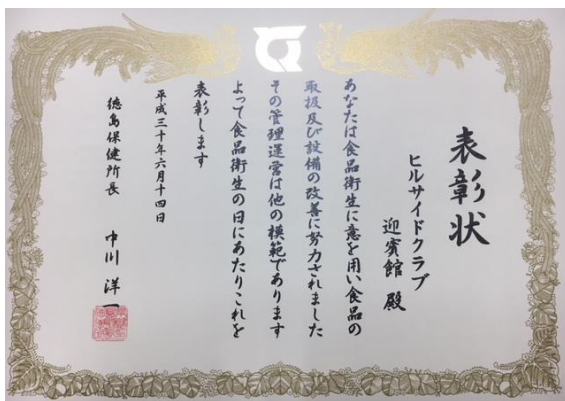 表彰状
ヒルサイドクラブ
迎賓館 殿
あなたは食品衛生に意を用い食品の
取扱及び設備の改善に努力されました
その管理運営は他の模範であります
よって食品衛生の日にあたりこれを
表彰します
平成三十年六月十四日
徳島保健所長 中川 洋一